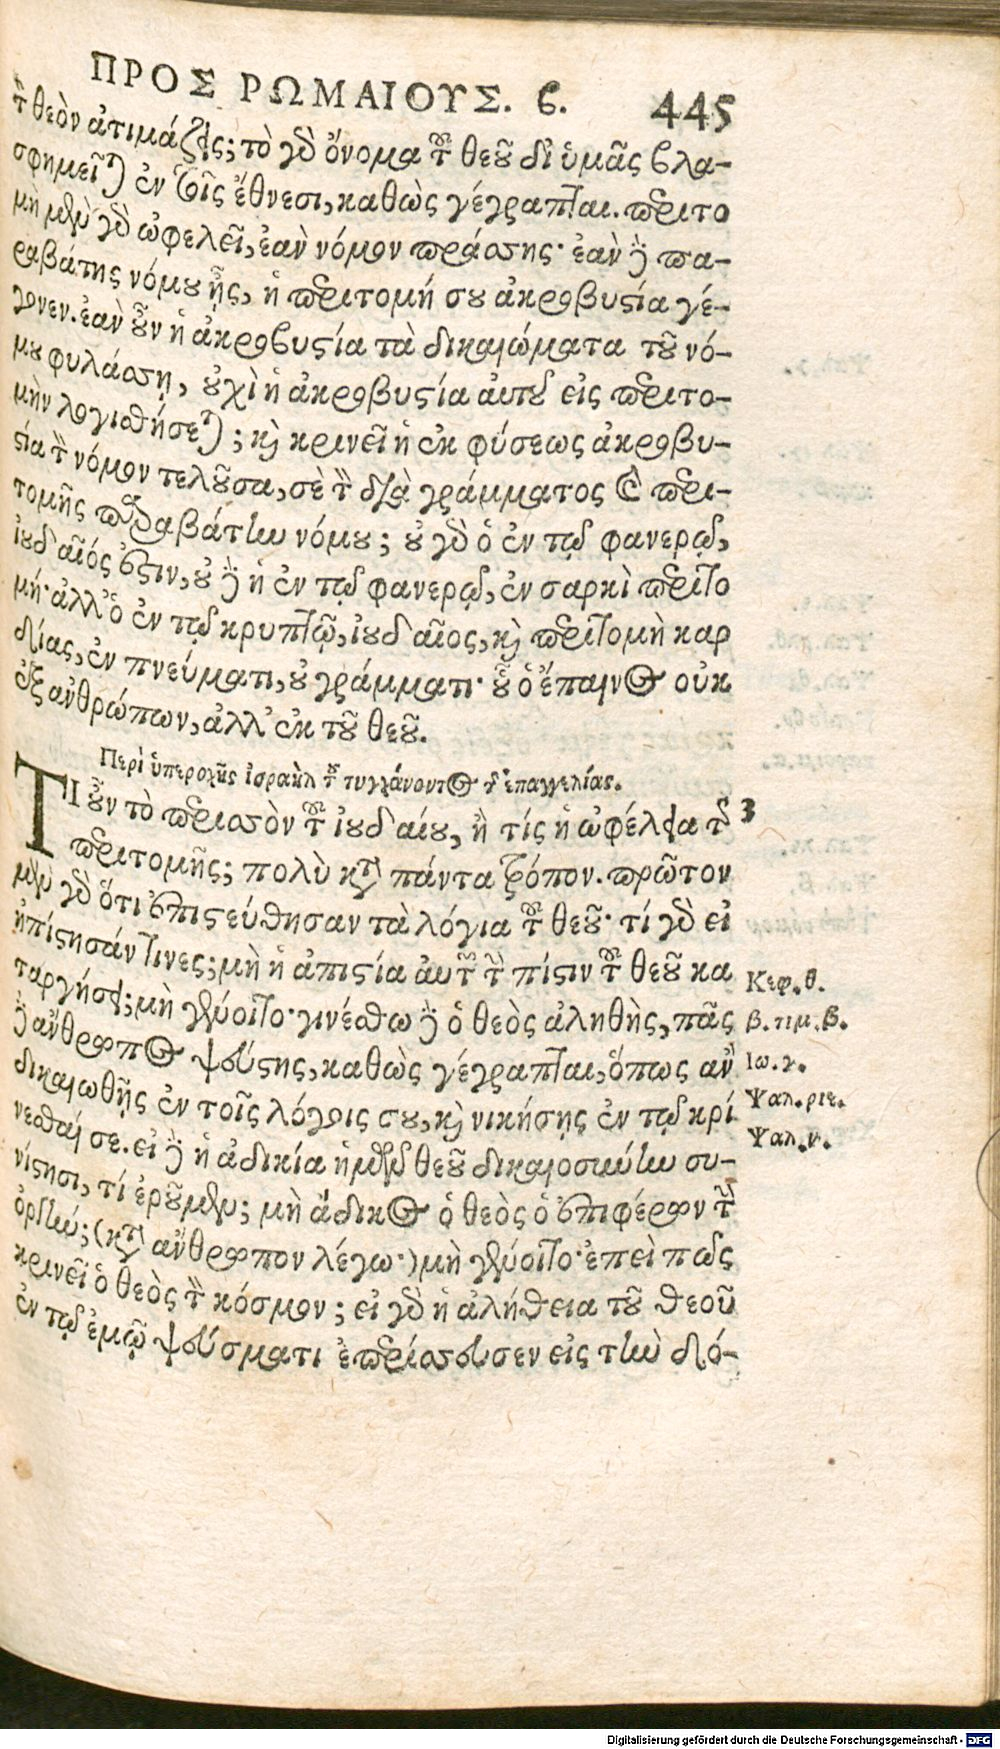 ΠΡΟΣ ΡΩΜΑΙΟΥΣ. ϐ. 445
τὸν θεὸν ἀτιμάζεις; τὸ γὰρ ὄνομα τοῦ θεοῦ δι' ὑμᾶς βλα-
σφημεῖται ἐν τοῖς ἔθνεσι, καθὼς γέγραπται. περιτο
μὴ μὲν γὰρ ὠφελεῖ, ἐὰν νόμον πράσσῃς· ἐὰν δὲ πα-
ραβάτης νόμου ᾖς, ἡ περιτομή σου ἀκροβυστία γέ-
γονεν. ἐὰν οὖν ἡ ἀκροβυστία τὰ δικαιώματα τοῦ νό-
μου φυλάσσῃ, οὐχὶ ἡ ἀκροβυστία αὐτοῦ εἰς περιτο-
μὴν λογισθήσεται; καὶ κρινεῖ ἡ ἐκ φύσεως ἀκροβυ-
στία τὸν νόμον τελοῦσα, σὲ τὸν διὰ γράμματος καὶ περι-
τομῆς παραβάτην νόμου; οὐ γὰρ ὁ ἐν τῷ φανερῷ,
ἰουδαῖός ἐστιν, οὐ δὲ ἡ ἐν τῷ φανερῷ, ἐν σαρκὶ περιτο
μή· ἀλλ' ὁ ἐν τῷ κρυπτῷ, ἰουδαῖος, καὶ περιτομὴ καρ
δίας, ἐν πνεύματι, οὐ γράμματι· οὗ ὁ ἔπαινος οὐκ
ἐξ ἀνθρώπων, ἀλλ' ἐκ τοῦ θεοῦ.
Περὶ ὑπεροχῆς ἰσραὴλ τοῦ τυγχάνοντος τῆς ἐπαγγελίας.
ΤΙ οὖν τὸ περισσὸν τοῦ ἰουδαίου, ἢ τίς ἡ ὠφέλεια τῆς 3
περιτομῆς; πολὺ κατὰ πάντα τρόπον. πρῶτον
μὲν γὰρ ὅτι ἐπιστεύθησαν τὰ λόγια τοῦ θεοῦ· τί γὰρ εἰ
ἠπίστησάν τινες; μὴ ἡ ἀπιστία αὐτῶν τὴν πίστιν τοῦ θεοῦ κα
ταργήσει; μὴ γένοιτο· γινέσθω δὲ ὁ θεὸς ἀληθὴς, πᾶς
δὲ ἄνθρωπος ψεύστης, καθὼς γέγραπται, ὅπως ἂν
δικαιωθῇς ἐν τοῖς λόγοις σου, καὶ νικήσῃς ἐν τῷ κρί
νεσθαί σε. εἰ δὲ ἡ ἀδικία ἡμῶν θεοῦ δικαιοσύνην συ-
νίστησι, τί ἐροῦμεν; μὴ ἄδικος ὁ θεὸς ὁ ἐπιφέρων τὴν
ὀργήν; (κατὰ ἄνθρωπον λέγω·) μὴ γένοιτο· ἐπεὶ πῶς
κρινεῖ ὁ θεὸς τὸν κόσμον; εἰ γὰρ ἡ ἀλήθεια τοῦ θεοῦ
ἐν τῷ ἐμῷ ψεύσματι ἐπερίσσευσεν εἰς τὴν δό-
Κεφ. θ.
β. τιμ. β.
Ιω. γ.
Ψαλ. ριε.
Ψαλ. ν.
Digitalisierung gefördert durch die Deutsche Forschungsgemeinschaft - DFG